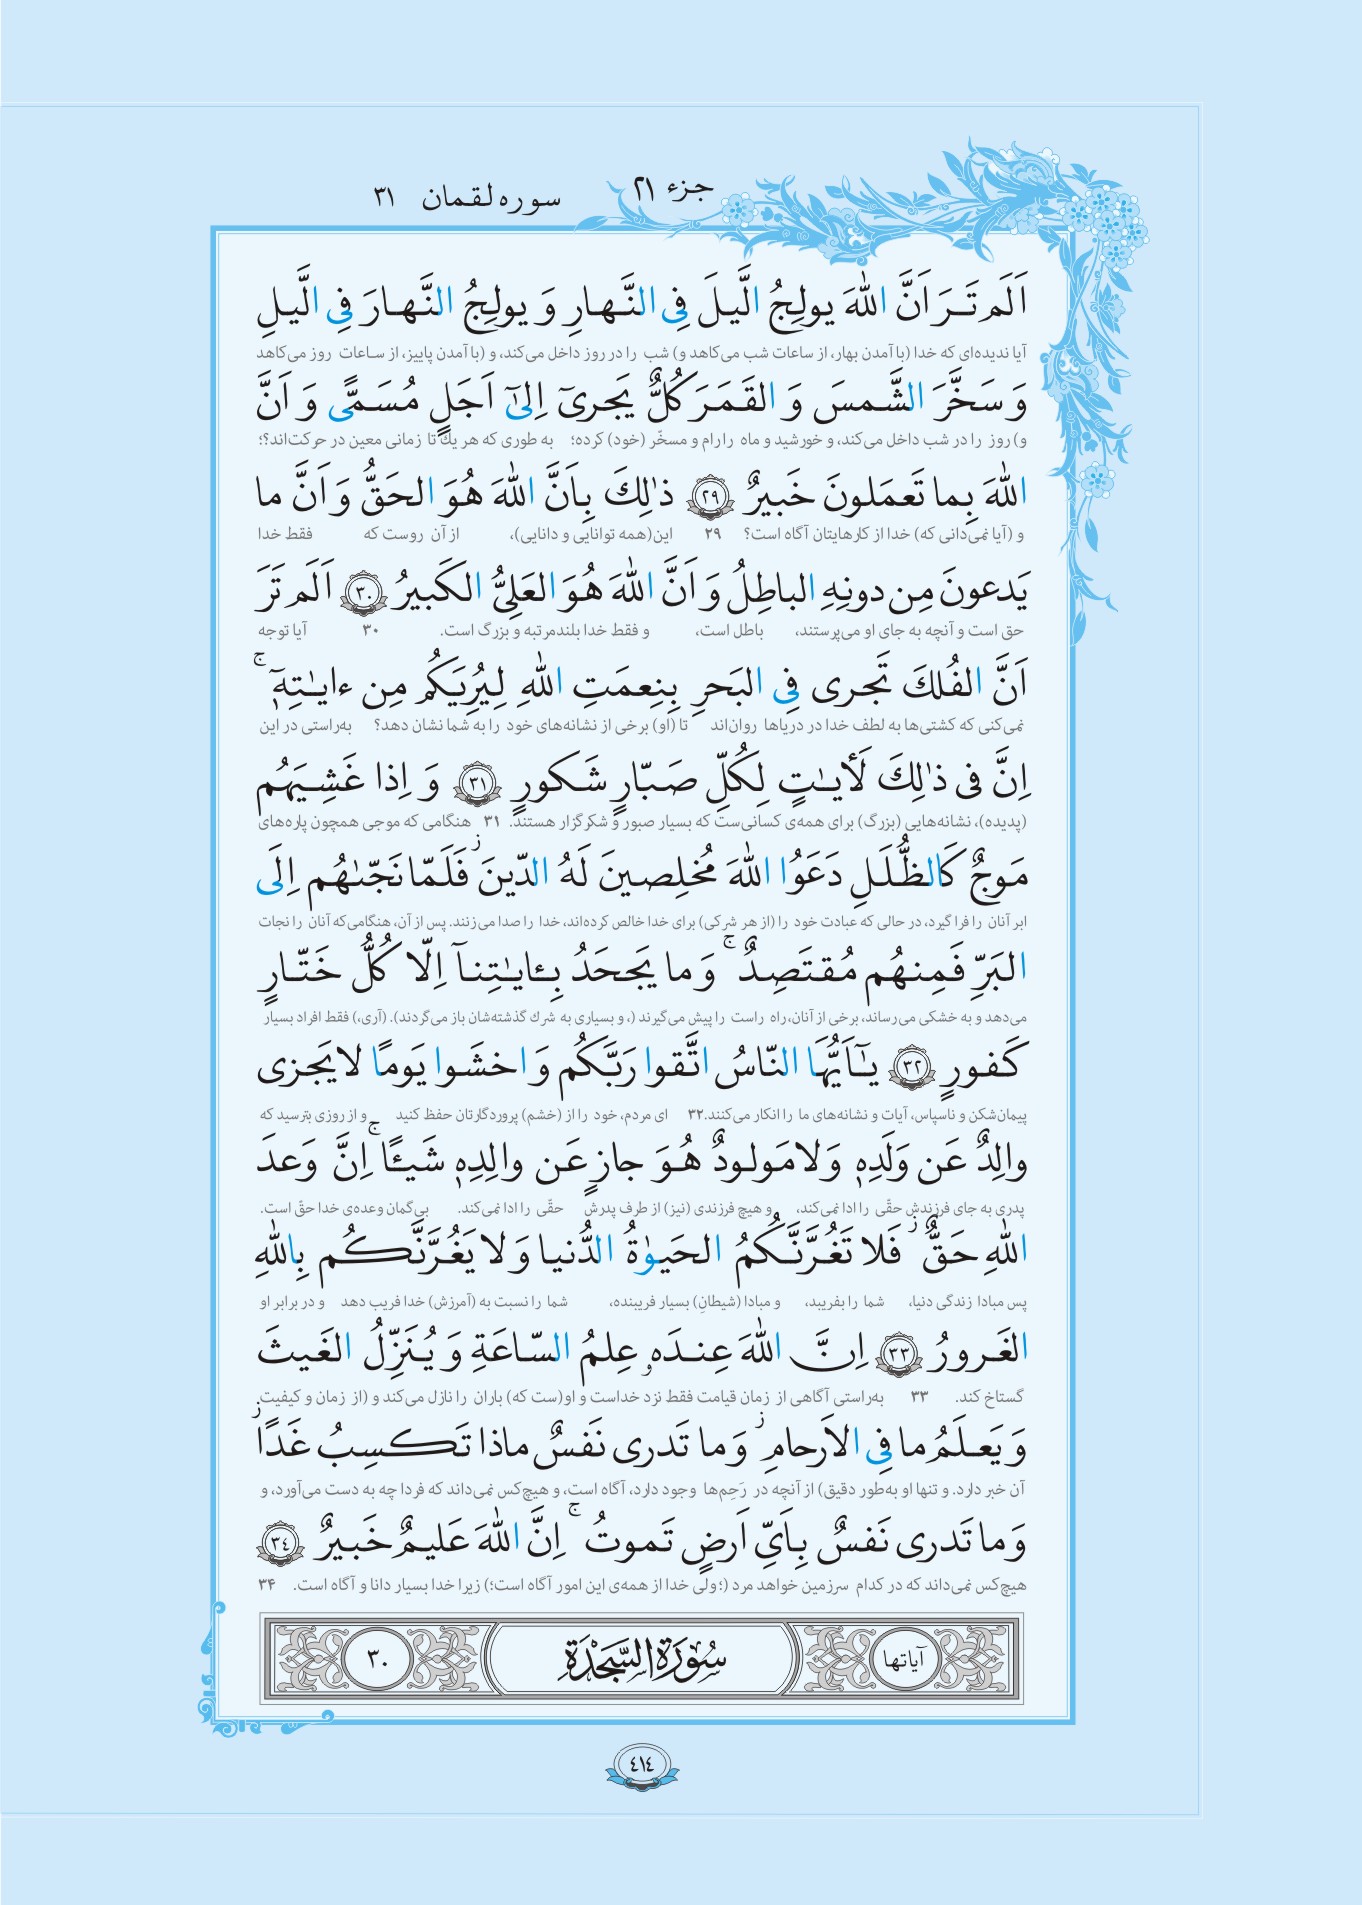 جزء ٢١
سوره لقمان ٣١
اَلَم تَرَ اَنَّ اللّٰهَ يولِجُ الَّيلَ فِى النَّهارِ وَ يولِجُ النَّهارَ فِى الَّيلِ
آیا ندیده‌ای که خدا (با آمدن بهار، از ساعات شب می‌کاهد و) شب را در روز داخل می‌کند، و (با آمدن پاییز، از ساعات روز می‌کاهد
وَ سَخَّرَ الشَّمسَ وَ القَمَرَ كُلٌّ يَجرىٓ اِلىٰٓ اَجَلٍ مُسَمًّى وَ اَنَّ
و) روز را در شب داخل می‌کند، و خورشید و ماه را رام و مسخّر (خود) کرده؛ به طوری که هر یك تا زمانی معین در حرکت‌اند؟؛
اللّٰهَ بِما تَعمَلونَ خَبيرٌ ٢٩ ذٰلِكَ بِاَنَّ اللّٰهَ هُوَ الحَقُّ وَ اَنَّ ما
و (آیا نمی‌دانی که) خدا از کارهایتان آگاه است؟ ۲۹ این(همه توانایی و دانایی)، از آن روست که فقط خدا
يَدعونَ مِن دونِهِ الباطِلُ وَ اَنَّ اللّٰهَ هُوَ العَلِىُّ الكَبيرُ ٣٠ اَلَم تَرَ
حق است و آنچه به جای او می‌پرستند، باطل است، و فقط خدا بلندمرتبه و بزرگ است. ۳۰ آیا توجه
اَنَّ الفُلكَ تَجرى فِى البَحرِ بِنِعمَتِ اللّٰهِ لِيُرِيَكُم مِن ءايٰتِهٖٓ ۚ
نمی‌کنی که کشتی‌ها به لطف خدا در دریاها روان‌اند تا (او) برخی از نشانه‌های خود را به شما نشان دهد؟ به‌راستی در این
اِنَّ فى ذٰلِكَ لَأيٰتٍ لِكُلِّ صَبّارٍ شَكورٍ ٣١ وَ اِذا غَشِيَهُم
(پدیده)، نشانه‌هایی (بزرگ) برای همه‌ی کسانی‌ست که بسیار صبور و شکرگزار هستند. ۳۱ هنگامی که موجی همچون پاره‌های
مَوجٌ كَالظُّلَلِ دَعَوُا اللّٰهَ مُخلِصينَ لَهُ الدّينَ ز فَلَمّا نَجّىٰهُم اِلَى
ابر آنان را فرا گیرد، در حالی که عبادت خود را (از هر شرکی) برای خدا خالص کرده‌اند، خدا را صدا می‌زنند. پس از آن، هنگامی‌که آنان را نجات
البَرِّ فَمِنهُم مُقتَصِدٌ ۚ وَ ما يَجحَدُ بِـٔايٰتِنآ اِلّا كُلُّ خَتّارٍ
می‌دهد و به خشکی می‌رساند، برخی از آنان، راه راست را پیش می‌گیرند (، و بسیاری به شرك گذشته‌شان باز می‌گردند). (آری،) فقط افراد بسیار
كَفورٍ ٣٢ يٰٓاَيُّهَا النّاسُ اتَّقوا رَبَّكُم وَ اخشَوا يَومًا لا يَجزى
پیمان‌شکن و ناسپاس، آیات و نشانه‌های ما را انکار می‌کنند.۳۲ ای مردم، خود را از (خشم) پروردگارتان حفظ کنید و از روزی بترسید که
والِدٌ عَن وَلَدِهٖ وَلا مَولودٌ هُوَ جازٍ عَن والِدِهٖ شَيـًٔا ۚ اِنَّ وَعدَ
پدری به جای فرزندش حقّی را ادا نمی‌کند، و هیچ فرزندی (نیز) از طرف پدرش حقّی را ادا نمی‌کند. بی‌گمان وعده‌ی خدا حقّ است.
اللّٰهِ حَقٌّ ز فَلا تَغُرَّنَّكُمُ الحَيوٰةُ الدُّنيا وَ لا يَغُرَّنَّكُم بِاللّٰهِ
پس مبادا زندگی دنیا، شما را بفریبد، و مبادا (شیطانِ) بسیار فریبنده، شما را نسبت به (آمرزش) خدا فریب دهد و در برابر او
الغَرورُ ٣٣ اِنَّ اللّٰهَ عِندَهو عِلمُ السّاعَةِ وَ يُنَزِّلُ الغَيثَ
گستاخ کند. ۳۳ به‌راستی آگاهی از زمان قیامت فقط نزد خداست و او(ست که) باران را نازل می‌کند و (از زمان و کیفیت
وَ يَعلَمُ ما فِى الاَرحامِ ز وَ ما تَدرى نَفسٌ ماذا تَكسِبُ غَدًا ز
آن خبر دارد. و تنها او به‌طور دقیق) از آنچه در رَحِم‌ها وجود دارد، آگاه است، و هیچ‌کس نمی‌داند که فردا چه به دست می‌آورد، و
وَ ما تَدرى نَفسٌ بِاَىِّ اَرضٍ تَموتُ ۚ اِنَّ اللّٰهَ عَليمٌ خَبيرٌ ٣٤
هیچ‌کس نمی‌داند که در کدام سرزمین خواهد مرد (؛ولی خدا از همه‌ی این امور آگاه است؛) زیرا خدا بسیار دانا و آگاه است. ۳۴
آیاتها سُورَةُ السَّجْدَةِ ٣٠
٤١٤